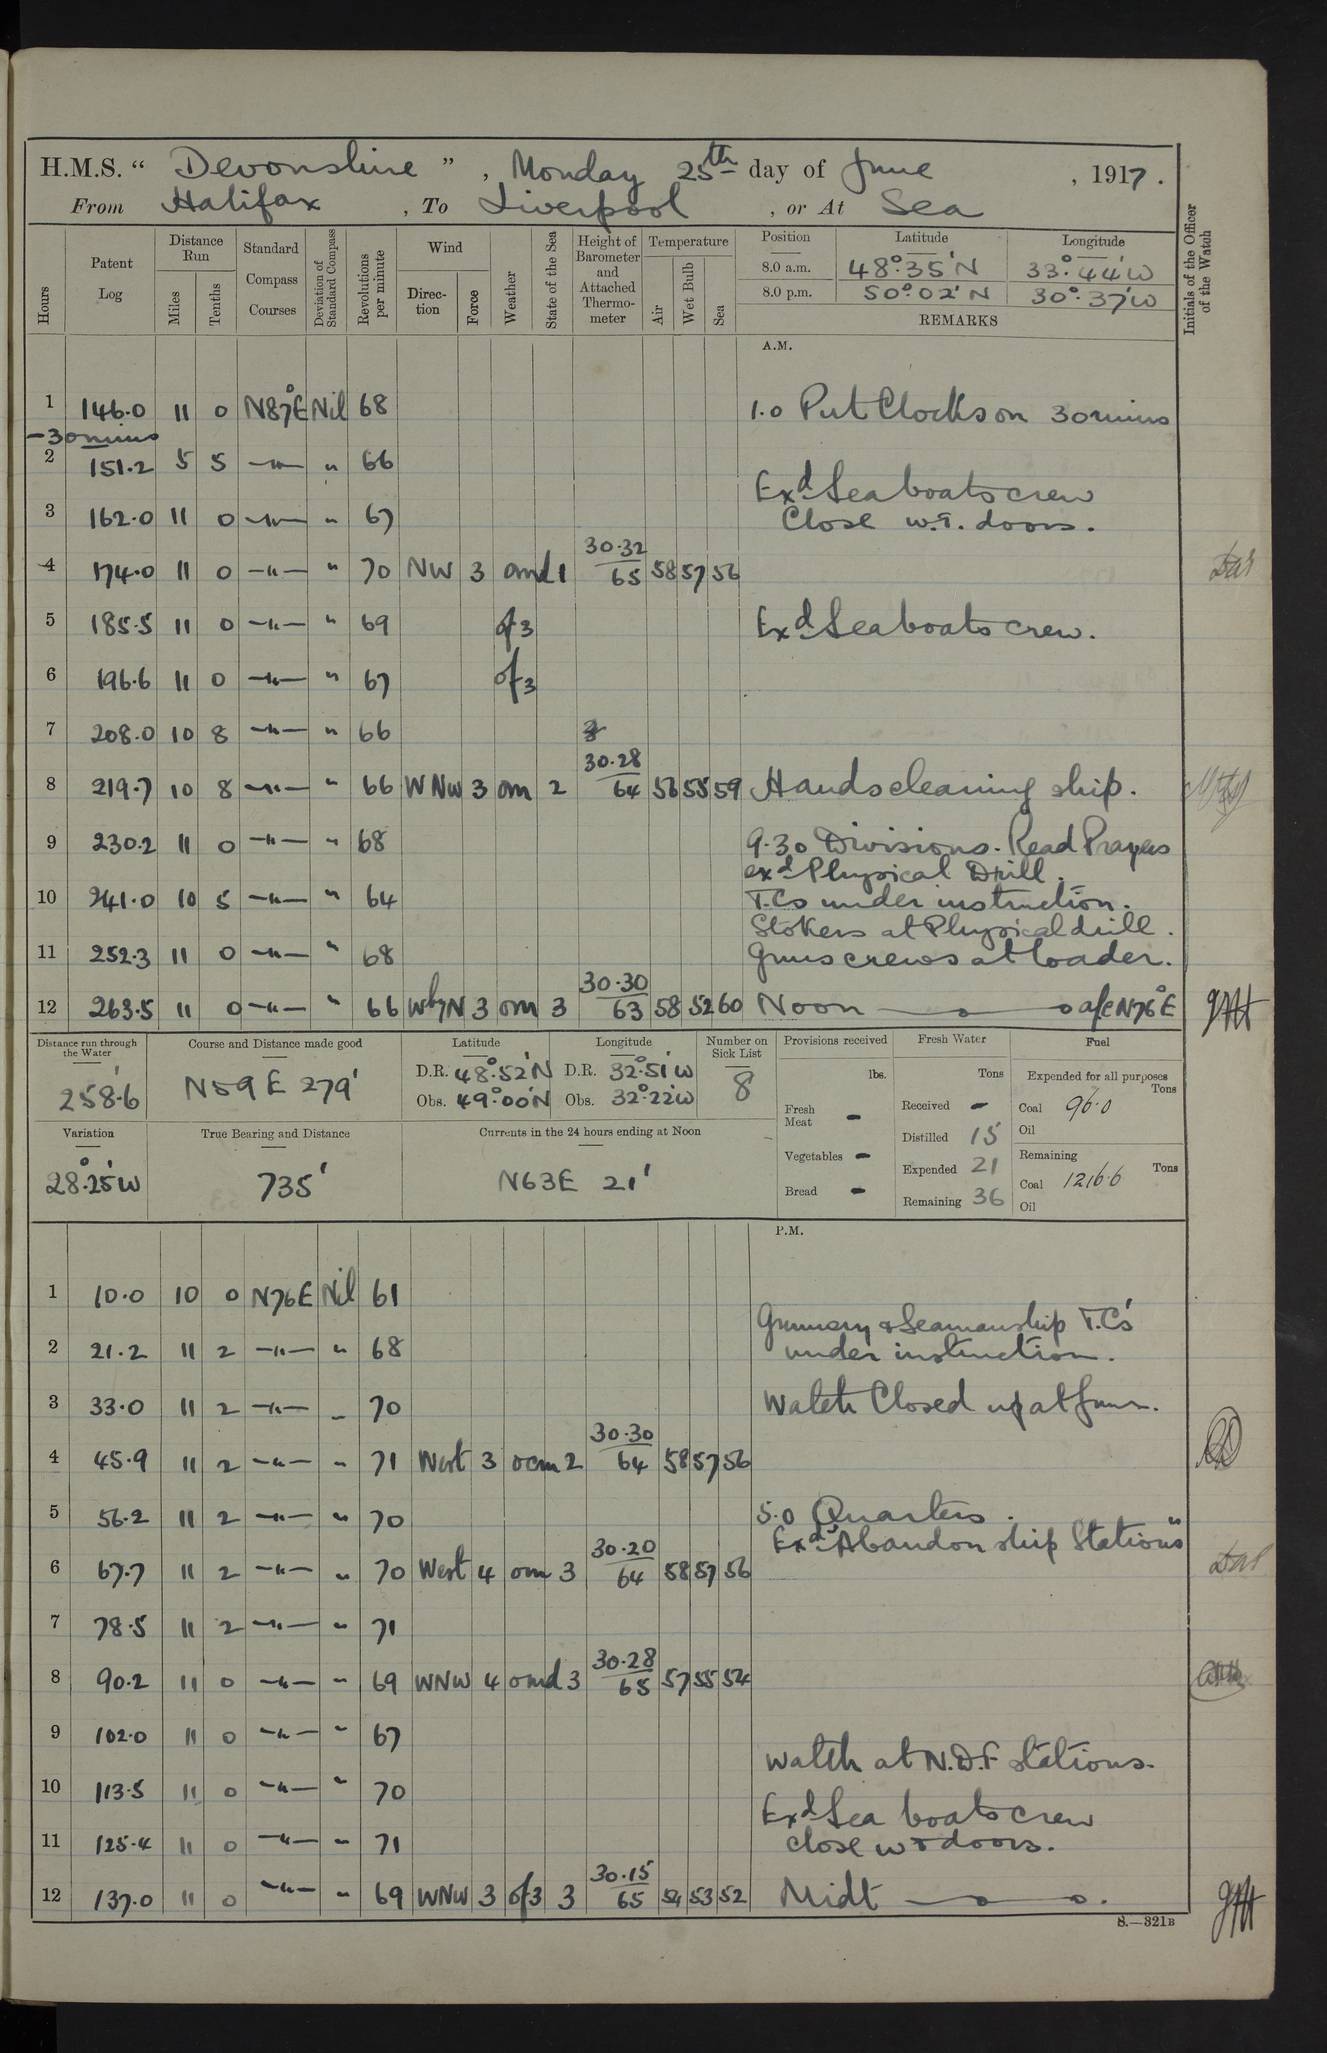 H.M.S. “ Devonshire ” , Monday 25th day of June , 1917 .
From Halifax , To Liverpool , or At Sea
Hours
Patent Log
Distance Run
Miles
Tenths
Standard Compass Courses
Deviation of Standard Compass
Revolutions per minute
Wind
Direction
Force
Weather
State of the Sea
Height of Barometer and Attached Thermometer
Temperature
Air
Wet Bulb
Sea
Position Latitude Longitude
8.0 a.m. 48°.35'N 33°.44'W
8.0 p.m. 50°.02'N 30°.37'W
REMARKS
Initials of the Officer of the Watch
A.M.
1 146.0 11 0 N87°E Nil 68 1.0 Put Clocks on 30 mins
-30 mins
2 151.2 5 5 —"— " 66
Exd Sea boats crew
3 162.0 11 0 —"— " 67 Close w.t. doors.
4 174.0 11 0 —"— " 70 NW 3 omd 1 30.32 65 58 57 56
5 185.5 11 0 —"— " 69 of3 Exd Sea boats crew.
6 196.6 11 0 —"— " 67 of3
7 208.0 10 8 —"— " 66
8 219.7 10 8 —"— " 66 WNW 3 om 2 30.28 64 56 55 59 Hands cleaning ship.
9 230.2 11 0 —"— " 68 9.30 Divisions. Read Prayers
exd Physical Drill.
10 241.0 10 5 —"— " 64 T.Cs under instruction.
Stokers at Physical drill.
11 252.3 11 0 —"— " 68 Guns crews at loader.
12 263.5 11 0 —"— " 66 WbyN 3 om 3 30.30 63 58 52 60 Noon a/c N76°E
Distance run through the Water
258.6
Course and Distance made good
N59E 279'
Latitude
D.R. 48°.52'N
Obs. 49°.00'N
Longitude
D.R. 32°.51'W
Obs. 32°.22'W
Number on Sick List
8
Provisions received
lbs.
Fresh Meat -
Vegetables -
Bread -
Fresh Water
Tons
Received -
Distilled 15
Expended 21
Remaining 36
Fuel
Expended for all purposes
Tons
Coal 96.0
Oil
Remaining
Tons
Coal 1216.6
Oil
Variation
28°.25'W
True Bearing and Distance
735'
Currents in the 24 hours ending at Noon
N63E 21'
P.M.
1 10.0 10 0 N76E Nil 61
Gunnery & Seamanship T.C's
2 21.2 11 2 —"— " 68 under instruction.
3 33.0 11 2 —"— " 70 Watch Closed up at Guns.
4 45.9 11 2 —"— " 71 West 3 ocm 2 30.30 64 58 57 56
5 56.2 11 2 —"— " 70 5.0 Quarters.
Exd "Abandon ship Stations"
6 67.7 11 2 —"— " 70 West 4 om 3 30.20 64 58 57 56
7 78.5 11 2 —"— " 71
8 90.2 11 0 —"— " 69 WNW 4 omd 3 30.28 65 57 55 54
9 102.0 11 0 —"— " 67
Watch at N.D.F stations.
10 113.5 11 0 —"— " 70
Exd Sea boats crew
11 125.4 11 0 —"— " 71 close w t doors.
12 137.0 11 0 —"— " 69 WNW 3 of3 3 30.15 65 54 53 52 Midt
S.—321B